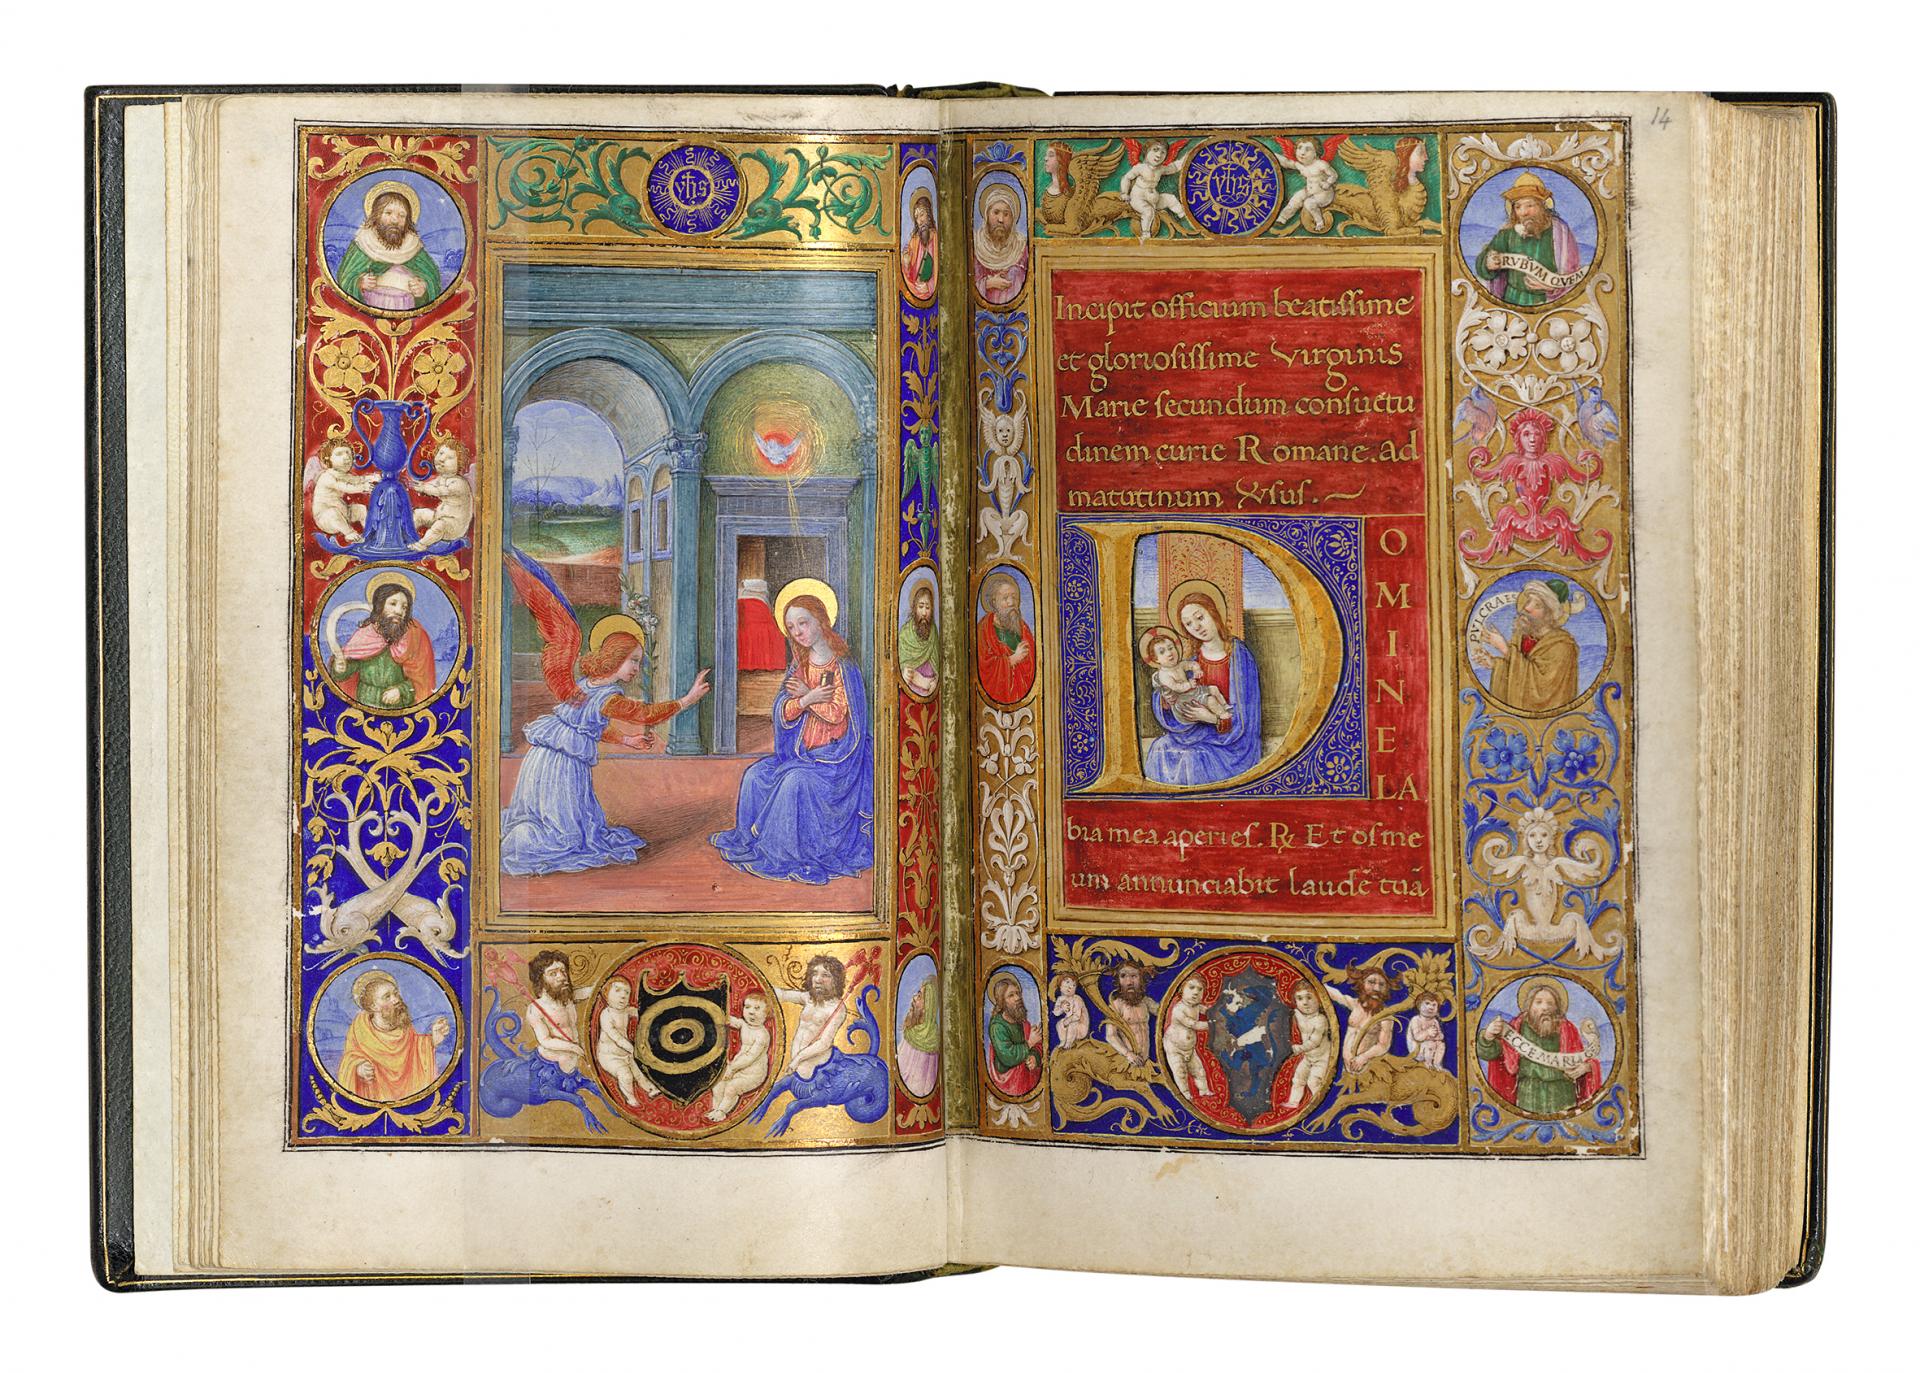 yhs
yhs
14
Incipit officium beatissime
et gloriosissime Virginis
Marie secundum consuetu
dinem curie Romane. ad
matutinum Usus.
D
OMINE LA
bia mea aperies. ℟ Et os me
um annunciabit laudē tuā
RVBVM QVEM
PVLCRAES
ECCE MARIA